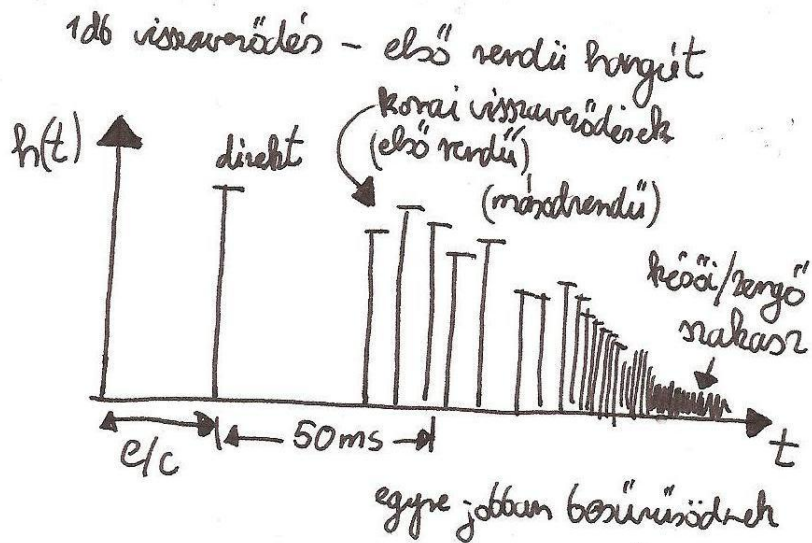 1db visszaverődés – első rendű hangút
h(t)
direkt
korai visszaverődések
(első rendű)
(másodrendű)
késői/zengő
szakasz
e/c
50ms
t
egyre jobban besűrűsödnek